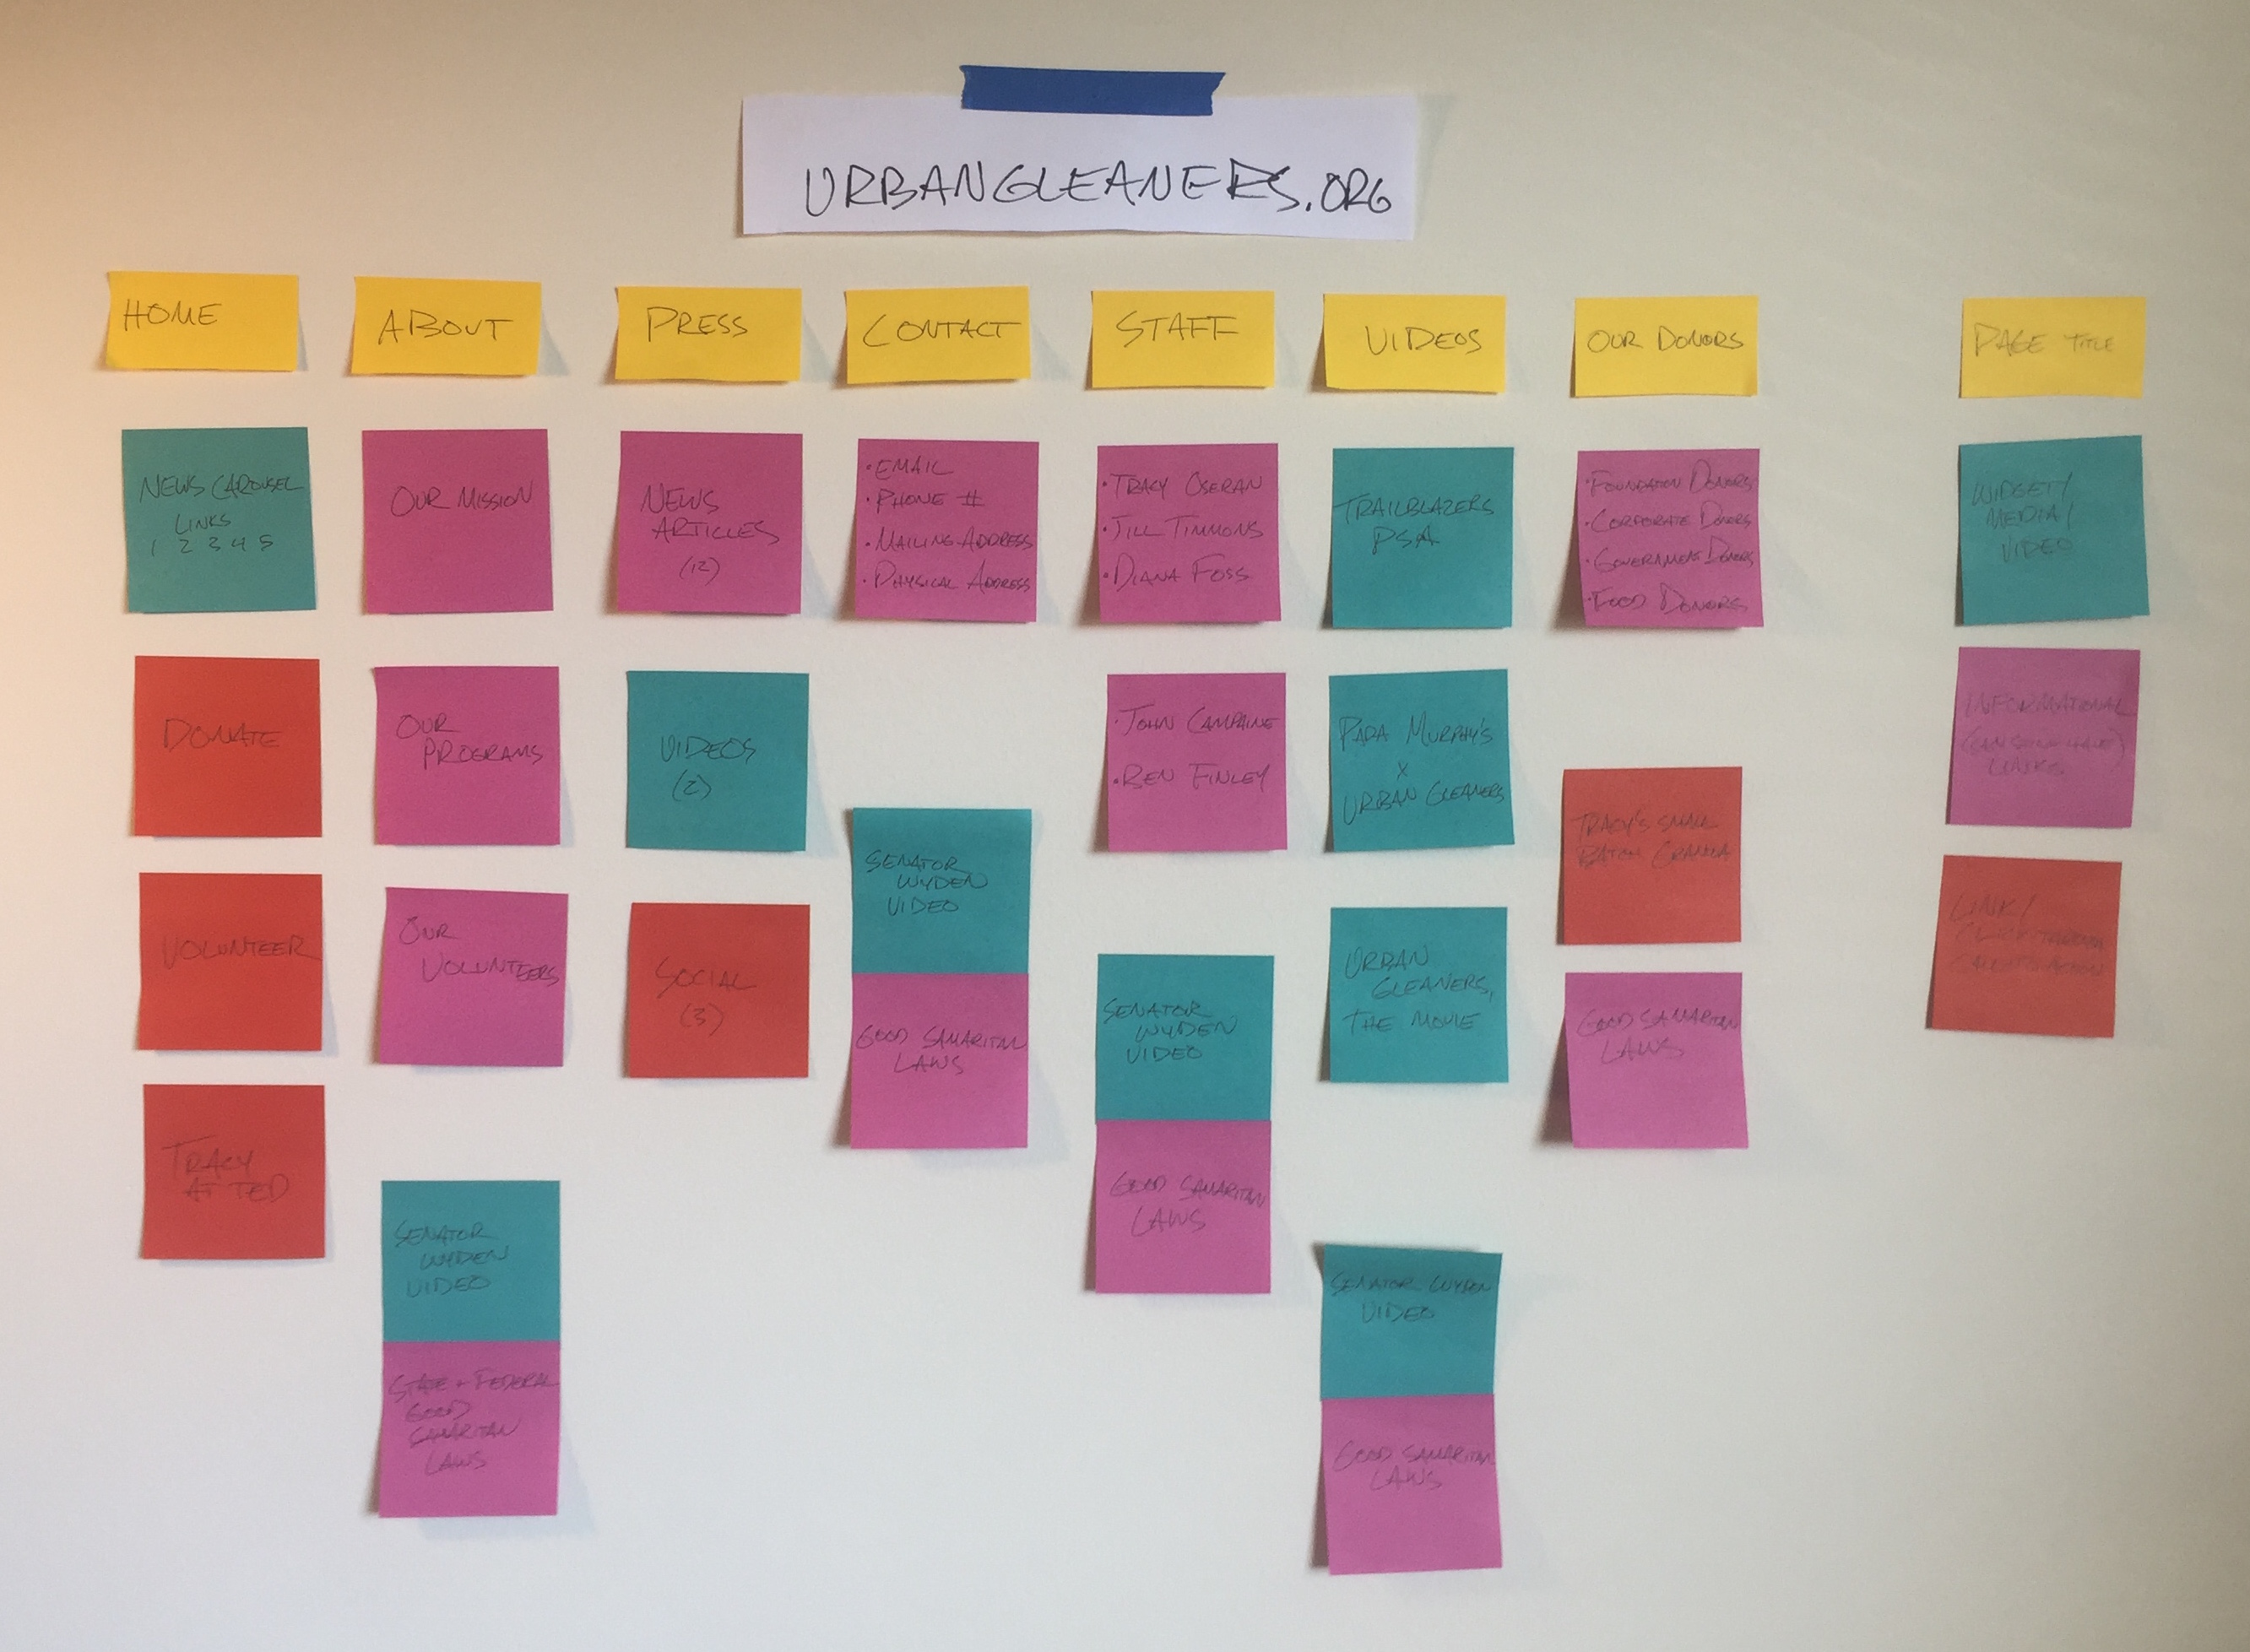 URBANGLEANERS.ORG
HOME
NEWS CAROUSEL
LINKS
1 2 3 4 5
DONATE
VOLUNTEER
TRACY
AT TED
ABOUT
OUR MISSION
OUR
PROGRAMS
OUR
VOLUNTEERS
SENATOR
WYDEN
VIDEO
STATE + FEDERAL
GOOD
SAMARITAN
LAWS
PRESS
NEWS
ARTICLES
(12)
VIDEOS
(2)
SOCIAL
(3)
CONTACT
• EMAIL
• PHONE #
• MAILING ADDRESS
• PHYSICAL ADDRESS
SENATOR
WYDEN
VIDEO
GOOD SAMARITAN
LAWS
STAFF
• TRACY OSERAN
• JILL TIMMONS
• DIANA FOSS
• JOHN CAMPAINE
• BEN FINLEY
SENATOR
WYDEN
VIDEO
GOOD SAMARITAN
LAWS
VIDEOS
TRAILBLAZERS
PSA
PAPA MURPHY'S
X
URBAN GLEANERS
URBAN
GLEANERS,
THE MOVIE
SENATOR WYDEN
VIDEO
GOOD SAMARITAN
LAWS
OUR DONORS
• FOUNDATION DONORS
• CORPORATE DONORS
• GOVERNMENT DONORS
• FOOD DONORS
TRACY'S SMALL
BATCH GRANOLA
GOOD SAMARITAN
LAWS
PAGE TITLE
WIDGET/
MEDIA/
VIDEO
INFORMATIONAL
LINKS
LINK/